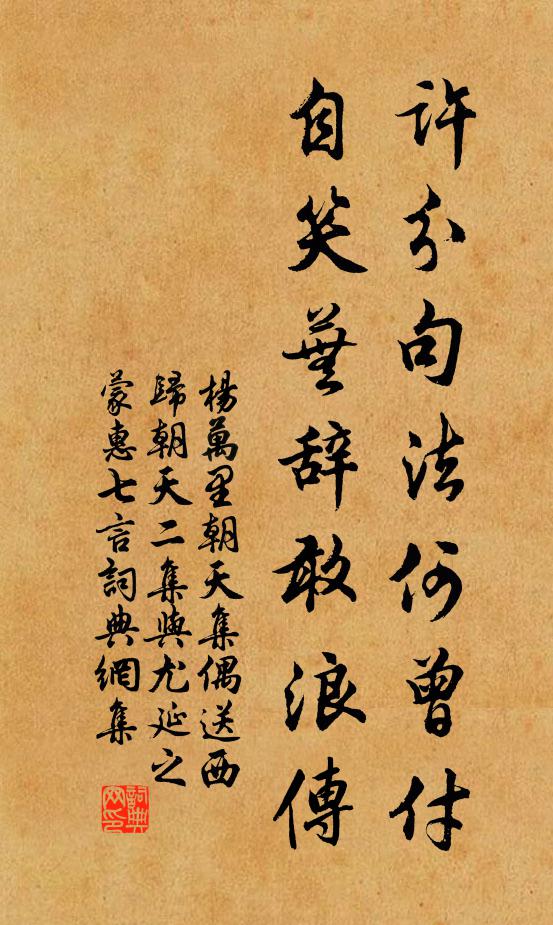 許分句法何曾付
自笑蕪辞敢浪傳
楊萬里朝天集偶送西
歸朝天二集與尤延之
蒙惠七言詞典網集
詞典网印